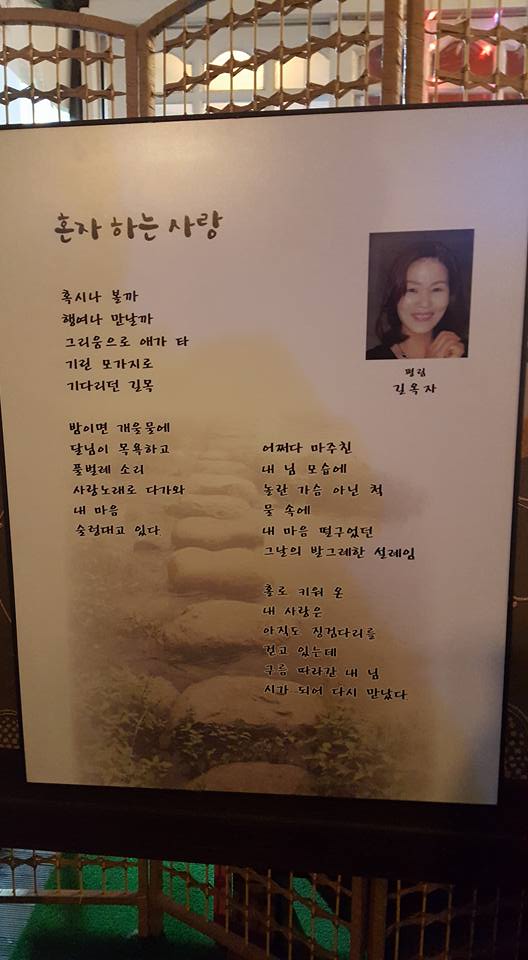 혼자 하는 사랑
혹시나 볼까
행여나 만날까
그리움으로 애가 타
기린 모가지로
기다리던 길목
밤이면 개울물에
달님이 목욕하고
풀벌레 소리
사랑노래로 다가와
내 마음
술렁대고 있다
길옥자
어쩌다 마주친
내 님 모습에
놀란 가슴 아닌 척
물 속에
내 마음 떨구었던
그날의 발그레한 설레임
홀로 키워 온
내 사랑은
아직도 징검다리를
걷고 있는데
구름 따라간 내 님
시가 되어 다시 만났다